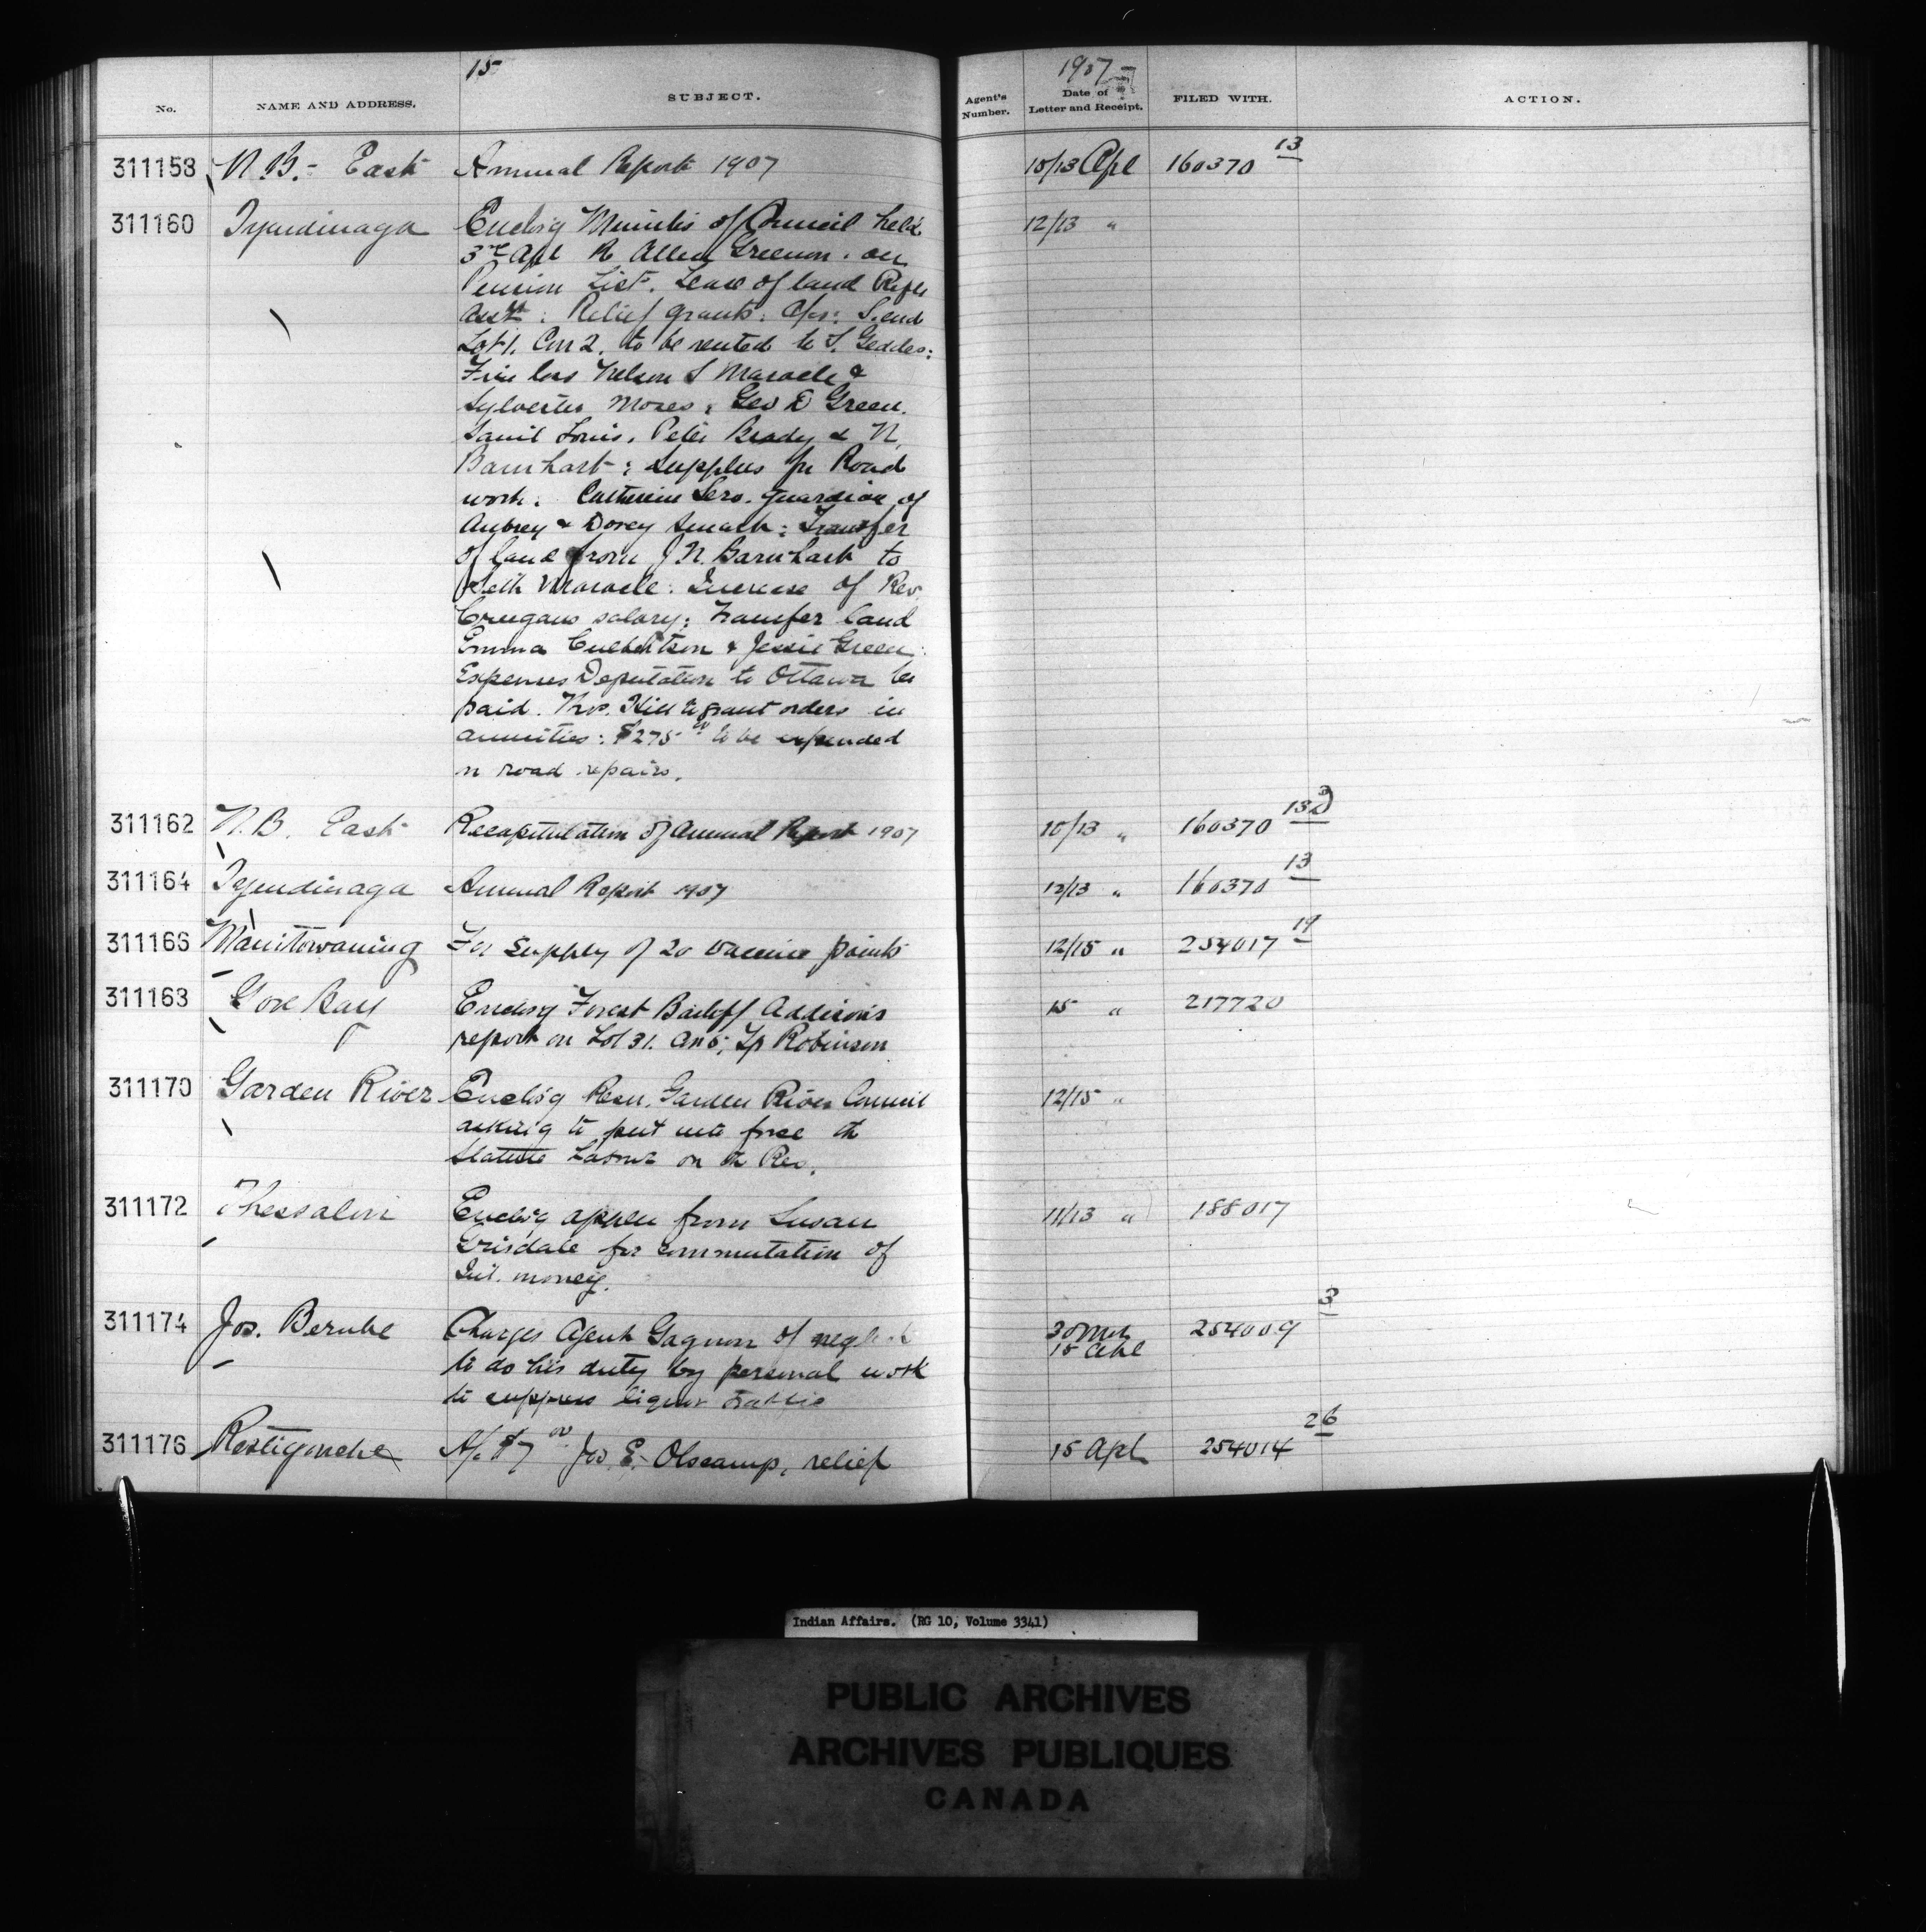 15
1907
No. NAME AND ADDRESS. SUBJECT. Agent's Number. Date of Letter and Receipt. FILED WITH. ACTION.
311158 N.B.- East Annual Report 1907 10/13 Apl 160370 13
311160 Tyendinaga Enclos'g Minutes of Council held 12/13 "
3rd Apl R Allen Greenon. on
Pension List. Lease of land Rifle
Assn: Relief grants: S. end
Lot 1. Con 2. to be rented to S. Geddes:
Fire loss Nelson S Maracle &
Sylvester Moses: Geo D Green.
Louis. Peter Brady & N.
Barnhart: Supplies for Road
work. Catherine Sero. guardian of
Aubrey & Dorey Smart: Transfer
of land from J N. Barnhart to
Seth Maracle: Increase of Rev.
Creegans salary: Transfer land
Emma Culbertson & Jessie Green:
Expenses Deputation to Ottawa be
paid. Thos. Hill to grant orders in
annuities: $275 00 to be expended
on road repairs.
311162 N.B. East Recapitulation of Annual Report 1907 10/13 " 160370 13
311164 Tyendinaga Annual Report 1907 12/13 " 160370 13
311166 Manitowaning For supply of 20 vaccine points 12/15 " 254017 19
311168 Gore Bay Enclos'g Forest Bailiff Addison's 15 " 217720
report on Lot 31. Con 5, Tp Robinson
311170 Garden River Enclos'g Resn. Garden River Council 12/15 "
asking to put into force the
Statute Labour on the Res.
311172 Thessalon Enclos'g appln from Susan 11/13 " 188017
Grisdale for commutation of
Int. money.
311174 Jos. Berube Charges Agent Gagnon of neglect 30 Mch 254009 3
to do his duty by personal work 15 Apl
to suppress liquor traffic
311176 Restigouche A/c $7 00 Jos E. Olscamp, relief 15 Apl 254014 26
Indian Affairs. (RG 10, Volume 3341)
PUBLIC ARCHIVES
ARCHIVES PUBLIQUES
CANADA